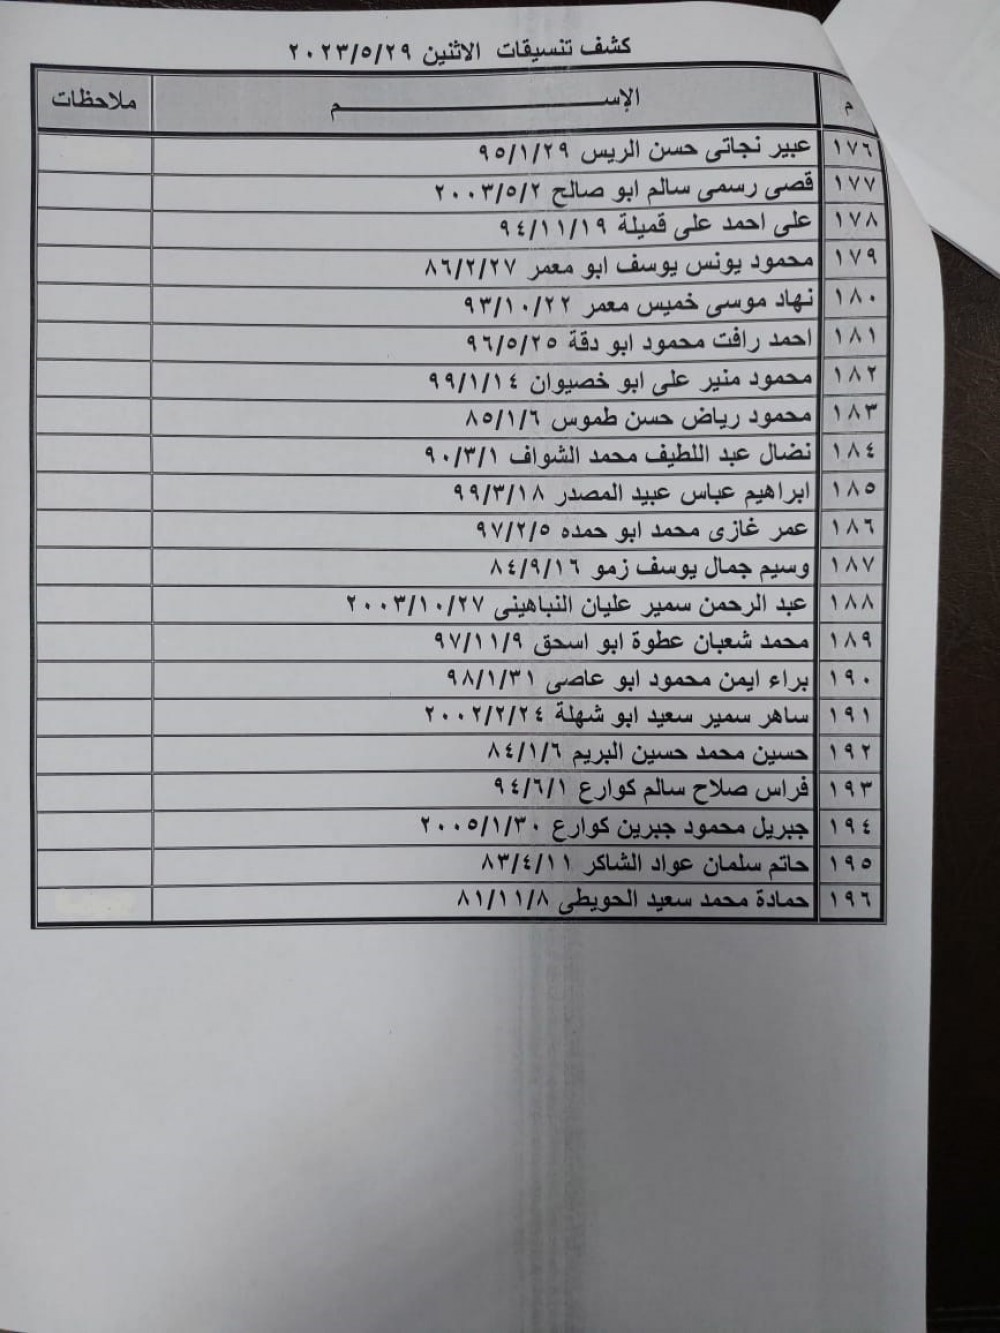 كشف تنسيقات الاثنين ٢٠٢٣/٥/٢٩
م الإســــــــــم ملاحظات
١٧٦ عبير نجاتى حسن الريس ٩٥/١/٢٩
١٧٧ قصى رسمى سالم ابو صالح ٢٠٠٣/٥/٢
١٧٨ على احمد على قميلة ٩٤/١١/١٩
١٧٩ محمود يونس يوسف ابو معمر ٨٦/٢/٢٧
١٨٠ نهاد موسى خميس معمر ٩٣/١٠/٢٢
١٨١ احمد رافت محمود ابو دقة ٩٦/٥/٢٥
١٨٢ محمود منير على ابو خصيوان ٩٩/١/١٤
١٨٣ محمود رياض حسن طموس ٨٥/١/٦
١٨٤ نضال عبد اللطيف محمد الشواف ٩٠/٣/١
١٨٥ ابراهيم عباس عبيد المصدر ٩٩/٣/١٨
١٨٦ عمر غازى محمد ابو حمده ٩٧/٢/٥
١٨٧ وسيم جمال يوسف زمو ٨٤/٩/١٦
١٨٨ عبد الرحمن سمير عليان النباهينى ٢٠٠٣/١٠/٢٧
١٨٩ محمد شعبان عطوة ابو اسحق ٩٧/١١/٩
١٩٠ براء ايمن محمود ابو عاصى ٩٨/١/٣١
١٩١ ساهر سمير سعيد ابو شهلة ٢٠٠٢/٢/٢٤
١٩٢ حسين محمد حسين البريم ٨٤/١/٦
١٩٣ فراس صلاح سالم كوارع ٩٤/٦/١
١٩٤ جبريل محمود جبرين كوارع ٢٠٠٥/١/٣٠
١٩٥ حاتم سلمان عواد الشاكر ٨٣/٤/١١
١٩٦ حمادة محمد سعيد الحويطى ٨١/١١/٨